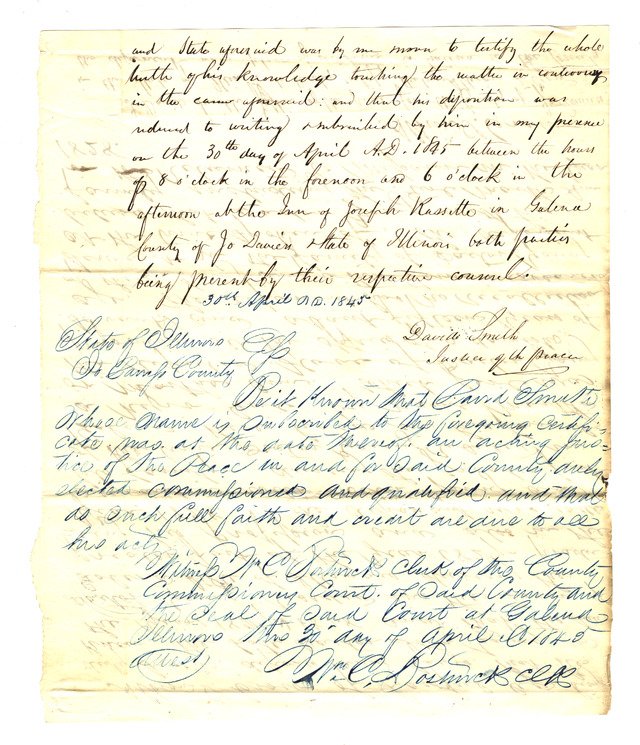 and State aforesaid was by me sworn to testify the whole
truth of his knowledge touching the matter in controversy
in the cause aforesaid: and that his deposition was
reduced to writing & subscribed by him in my presence
on the 30th day of April A.D. 1845 between the hours
of 8 o'clock in the forenoon and 6 o'clock in the
afternoon at the Inn of Joseph Rassette in Galena
County of Jo Daviess & State of Illinois both parties
being present by their respective counsel.
30th April A.D. 1845
David Smith
Justice of the peace
State of Illinois
Jo Daviess County
Be it Known that David Smith
whose name is subscribed to the foregoing certifi-
cate was at the date thereof an acting jus-
tice of the Peace in and for said County duly
elected commissioned and qualified and that
as such full faith and credit are due to all
his acts
Witness Wm C. Bostwick clerk of the County
Commissioners Court of said County and
the seal of said Court at Galena
Illinois this 30th day of April 1845
Attest
Wm C. Bostwick Clk